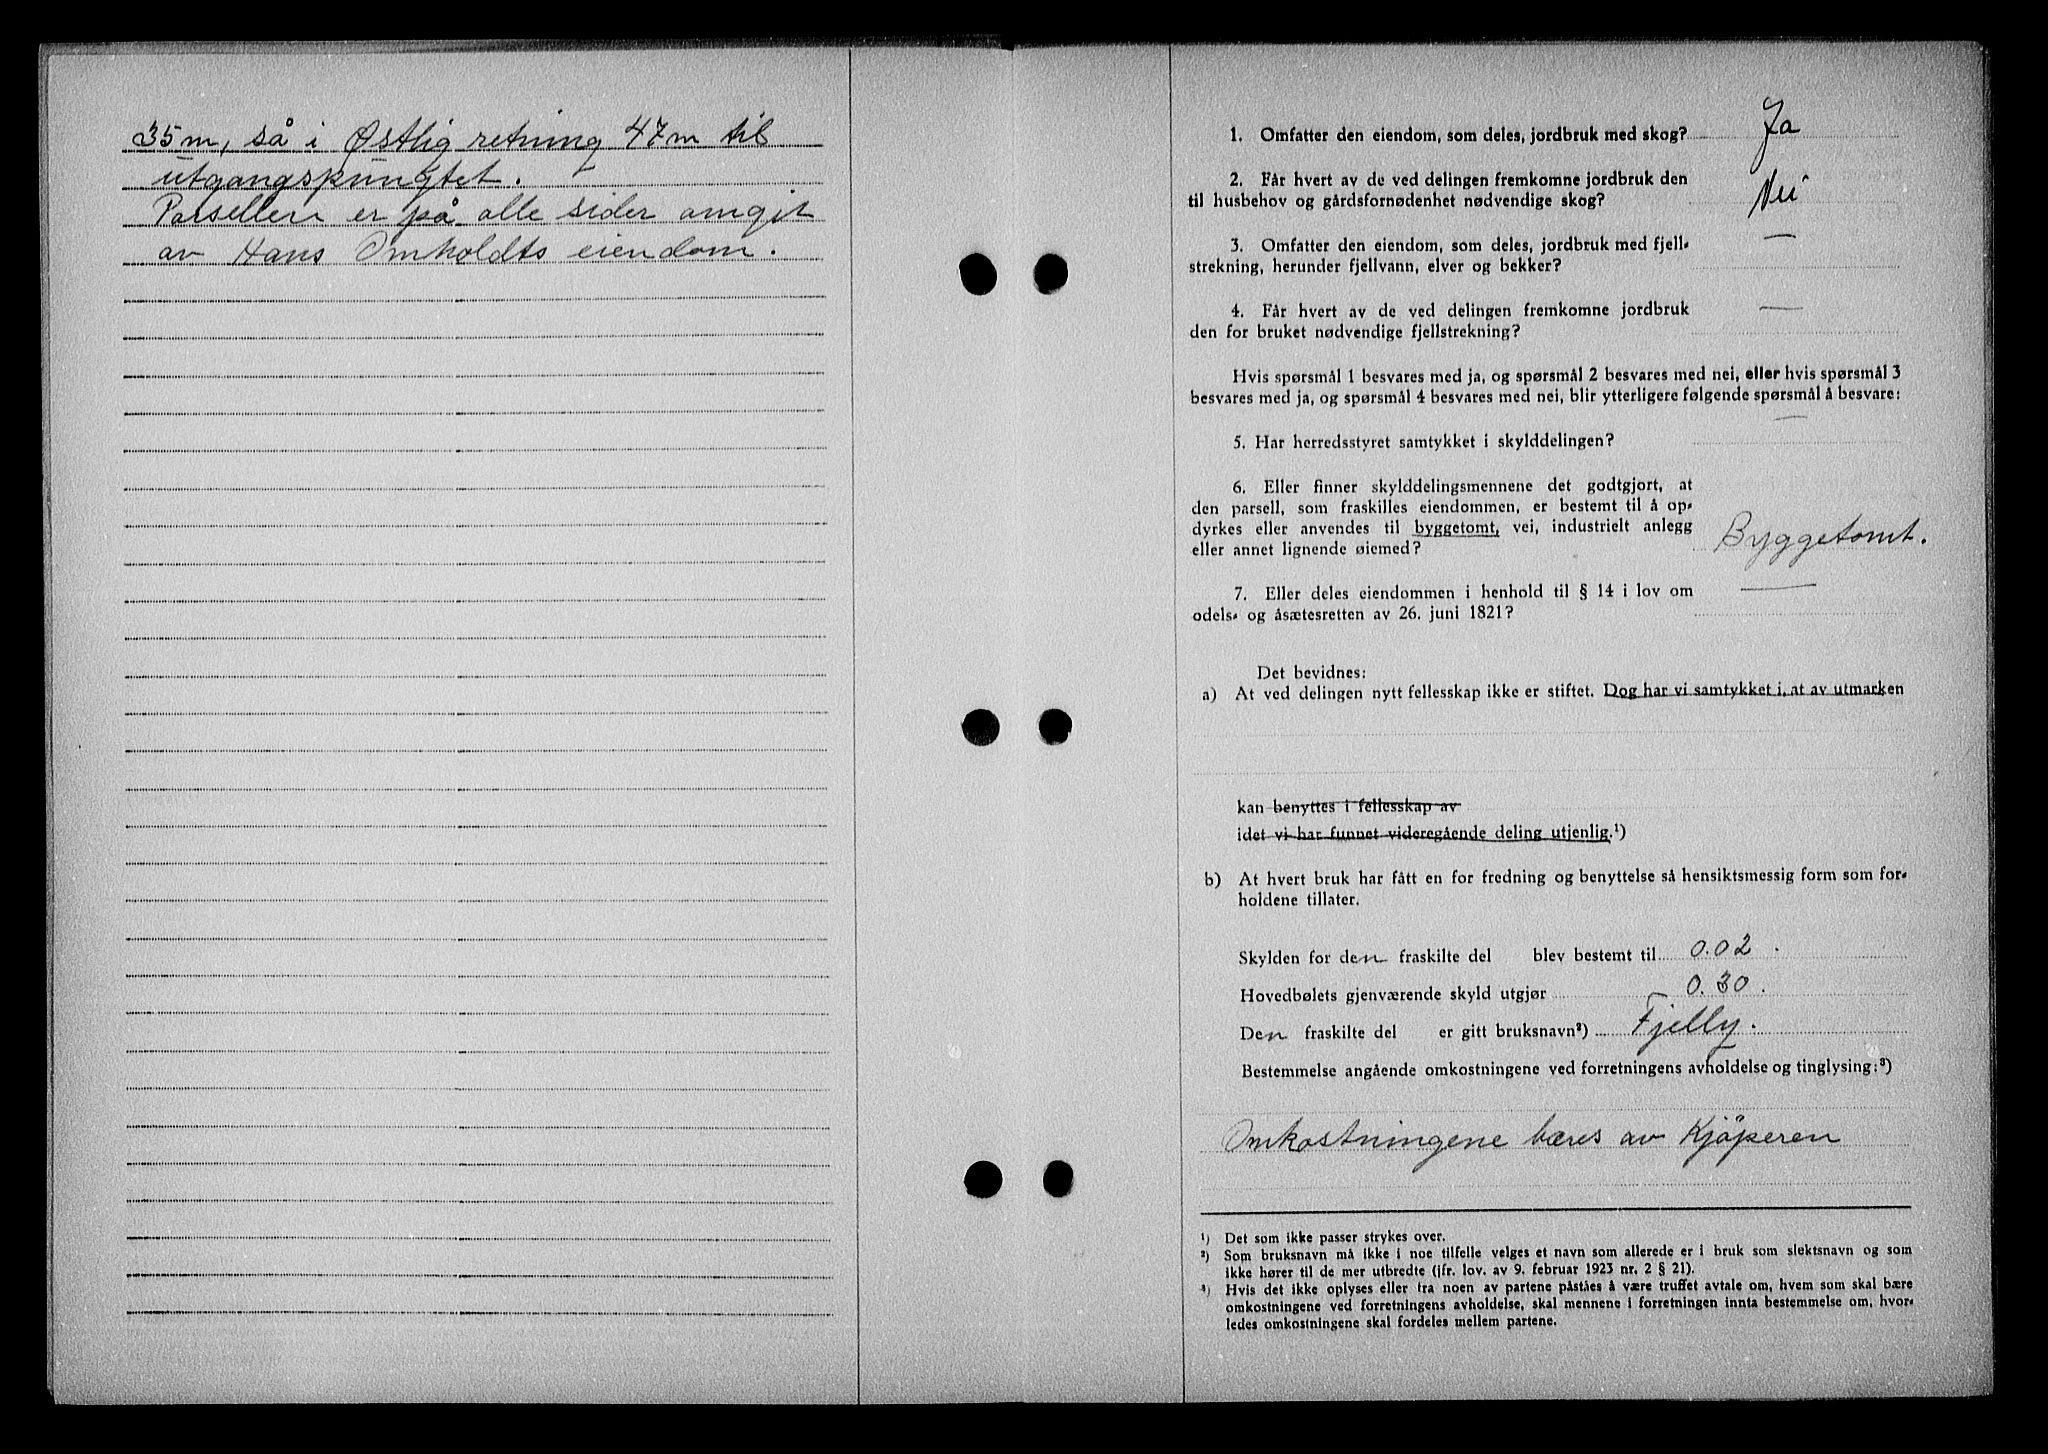 35m, så i Østlig retning 47m til
utgangspungtet.
Parsellen er på alle sider omgit
av Hans Omholdts eiendom.
1. Omfatter den eiendom, som deles, jordbruk med skog? Ja
2. Får hvert av de ved delingen fremkomne jordbruk den
til husbehov og gårdsfornødenhet nødvendige skog? Nei
3. Omfatter den eiendom, som deles, jordbruk med fjell-
strekning, herunder fjellvann, elver og bekker? —
4. Får hvert av de ved delingen fremkomne jordbruk
den for bruket nødvendige fjellstrekning? —
Hvis spørsmål 1 besvares med ja, og spørsmål 2 besvares med nei, eller hvis spørsmål 3
besvares med ja, og spørsmål 4 besvares med nei, blir ytterligere følgende spørsmål å besvare:
5. Har herredsstyret samtykket i skylddelingen? —
6. Eller finner skylddelingsmennene det godtgjort, at
den parsell, som fraskilles eiendommen, er bestemt til å op-
dyrkes eller anvendes til byggetomt, vei, industrielt anlegg
eller annet lignende øiemed? Byggetomt.
7. Eller deles eiendommen i henhold til § 14 i lov om
odels- og åsætesretten av 26. juni 1821? —
Det bevidnes:
a) At ved delingen nytt fellesskap ikke er stiftet. Dog har vi samtykket i, at av utmarken
kan benyttes i fellesskap av
idet vi har funnet videregående deling utjenlig.¹)
b) At hvert bruk har fått en for fredning og benyttelse så hensiktsmessig form som for-
holdene tillater.
Skylden for den fraskilte del blev bestemt til 0.02.
Hovedbølets gjenværende skyld utgjør 0.30.
Den fraskilte del er gitt bruksnavn²) Fjelly.
Bestemmelse angående omkostningene ved forretningens avholdelse og tinglysing:³)
Omkostningene bæres av Kjöperen
¹) Det som ikke passer strykes over.
²) Som bruksnavn må ikke i noe tilfelle velges et navn som allerede er i bruk som slektsnavn og som
ikke hører til de mer utbredte (jfr. lov. av 9. februar 1923 nr. 2 § 21).
³) Hvis det ikke oplyses eller fra noen av partene påståes å være truffet avtale om, hvem som skal bære
omkostningene ved forretningens avholdelse, skal mennene i forretningen innta bestemmelse om, hvor-
ledes omkostningene skal fordeles mellem partene.